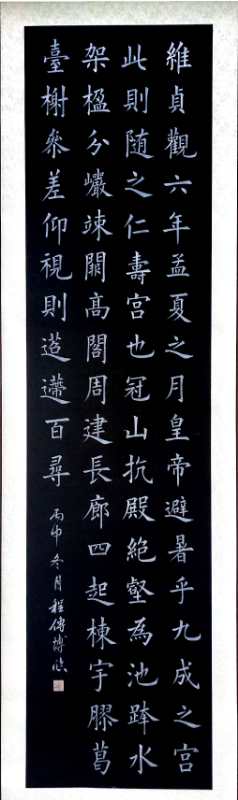 維貞觀六年孟夏之月皇帝避暑乎九成之宮
此則随之仁壽宮也冠山抗殿絶壑為池跨水
架楹分巖竦闕高閣周建長廊四起棟宇膠葛
臺榭參差仰視則迢遰百尋
丙申冬月程傳博